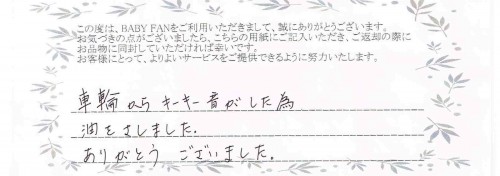 この度は、BABY FANをご利用いただきまして、誠にありがとうございます。
お気づきの点がございましたら、こちらの用紙にご記入いただき、ご返却の際に
お品物に同封していただければ幸いです。
お客様にとって、よりよいサービスをご提供できるように努力いたします。
車輪からキーキー音がした為
油をさしました.
ありがとう ございました.